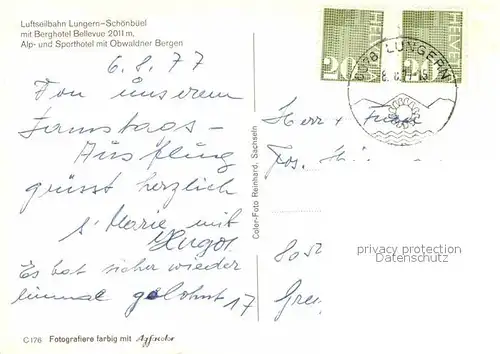 Luftseilbahn Lungern–Schönbüel
mit Berghotel Bellevue 2011 m,
Alp- und Sporthotel mit Obwaldner Bergen
6.8.77
Von Unserem
Samstags-
Ausflug
grüsst herzlich
s'Marie mit
Hugo
Es hat sicher wieder
einmal gelohnt
17
C 176 Fotografiere farbig mit Agfacolor
Color-Foto Reinhard, Sachseln
20 HELVETIA
20 HELVETIA
6078 LUNGERN
Herr + Frau
Jos.
8052
privacy protection
Datenschutz